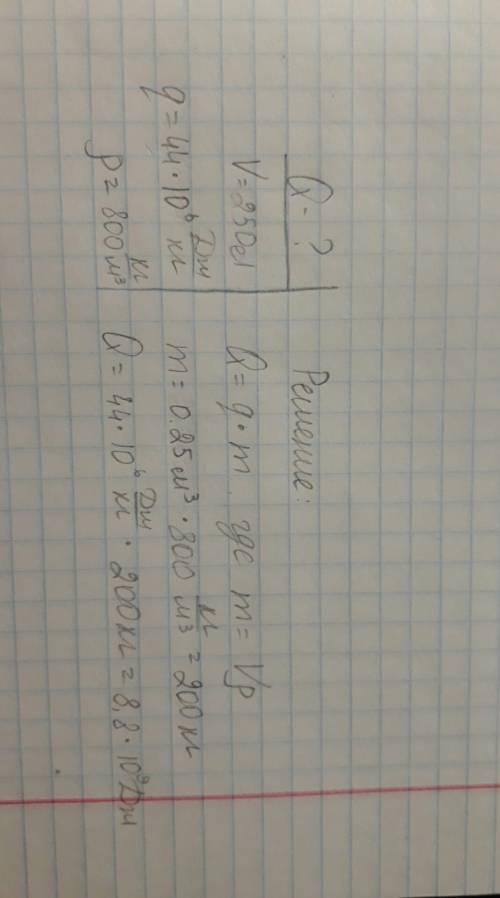 Q - ?
V = 250 л
q = 44 · 10⁶ Дж/кг
ρ = 800 кг/м³
Решение:
Q = q · m, где m = Vρ
m = 0.25 м³ · 800 кг/м³ = 200 кг
Q = 44 · 10⁶ Дж/кг · 200 кг = 8,8 · 10⁹ Дж